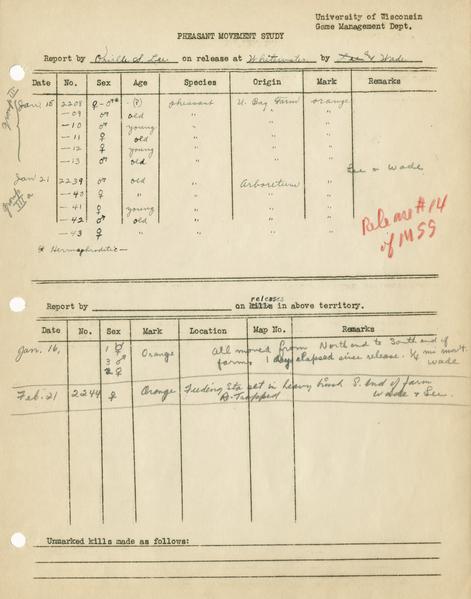 University of Wisconsin
Game Management Dept.
PHEASANT MOVEMENT STUDY
Report by Orville S. Lee on release at Whitewater by Lee & Wade
Date No. Sex Age Species Origin Mark Remarks
Group III
Jan 15 2208 ♀-♂* (?) pheasant U. Bay Farm orange
-09 ♂ old " " "
-10 ♂ young " " "
-11 ♀ old " " "
-12 ♀ young " " "
-13 ♂ old " " "
Lee & Wade
Group III a
Jan 21 2239 ♂ old " Arboretum "
-40 ♀ " " " "
-41 ♀ young " " "
-42 ♂ old " " "
-43 ♀ " " " "
Release #14
of MSG
* Hermaphroditic -
releases
Report by on kills in above territory.
Date No. Sex Mark Location Map No. Remarks
Jan. 16, 1 ⚥ 3 ♂ 2 ♀ Orange All moved from North end to South end of
farm, 1 day elapsed since release. 1/4 mi. mov't.
Wade
Feb. 21 2244 ♀ Orange Feeding Sta. set in heavy brush S. end of farm
B-Trapped Wade & Lee
Unmarked kills made as follows: